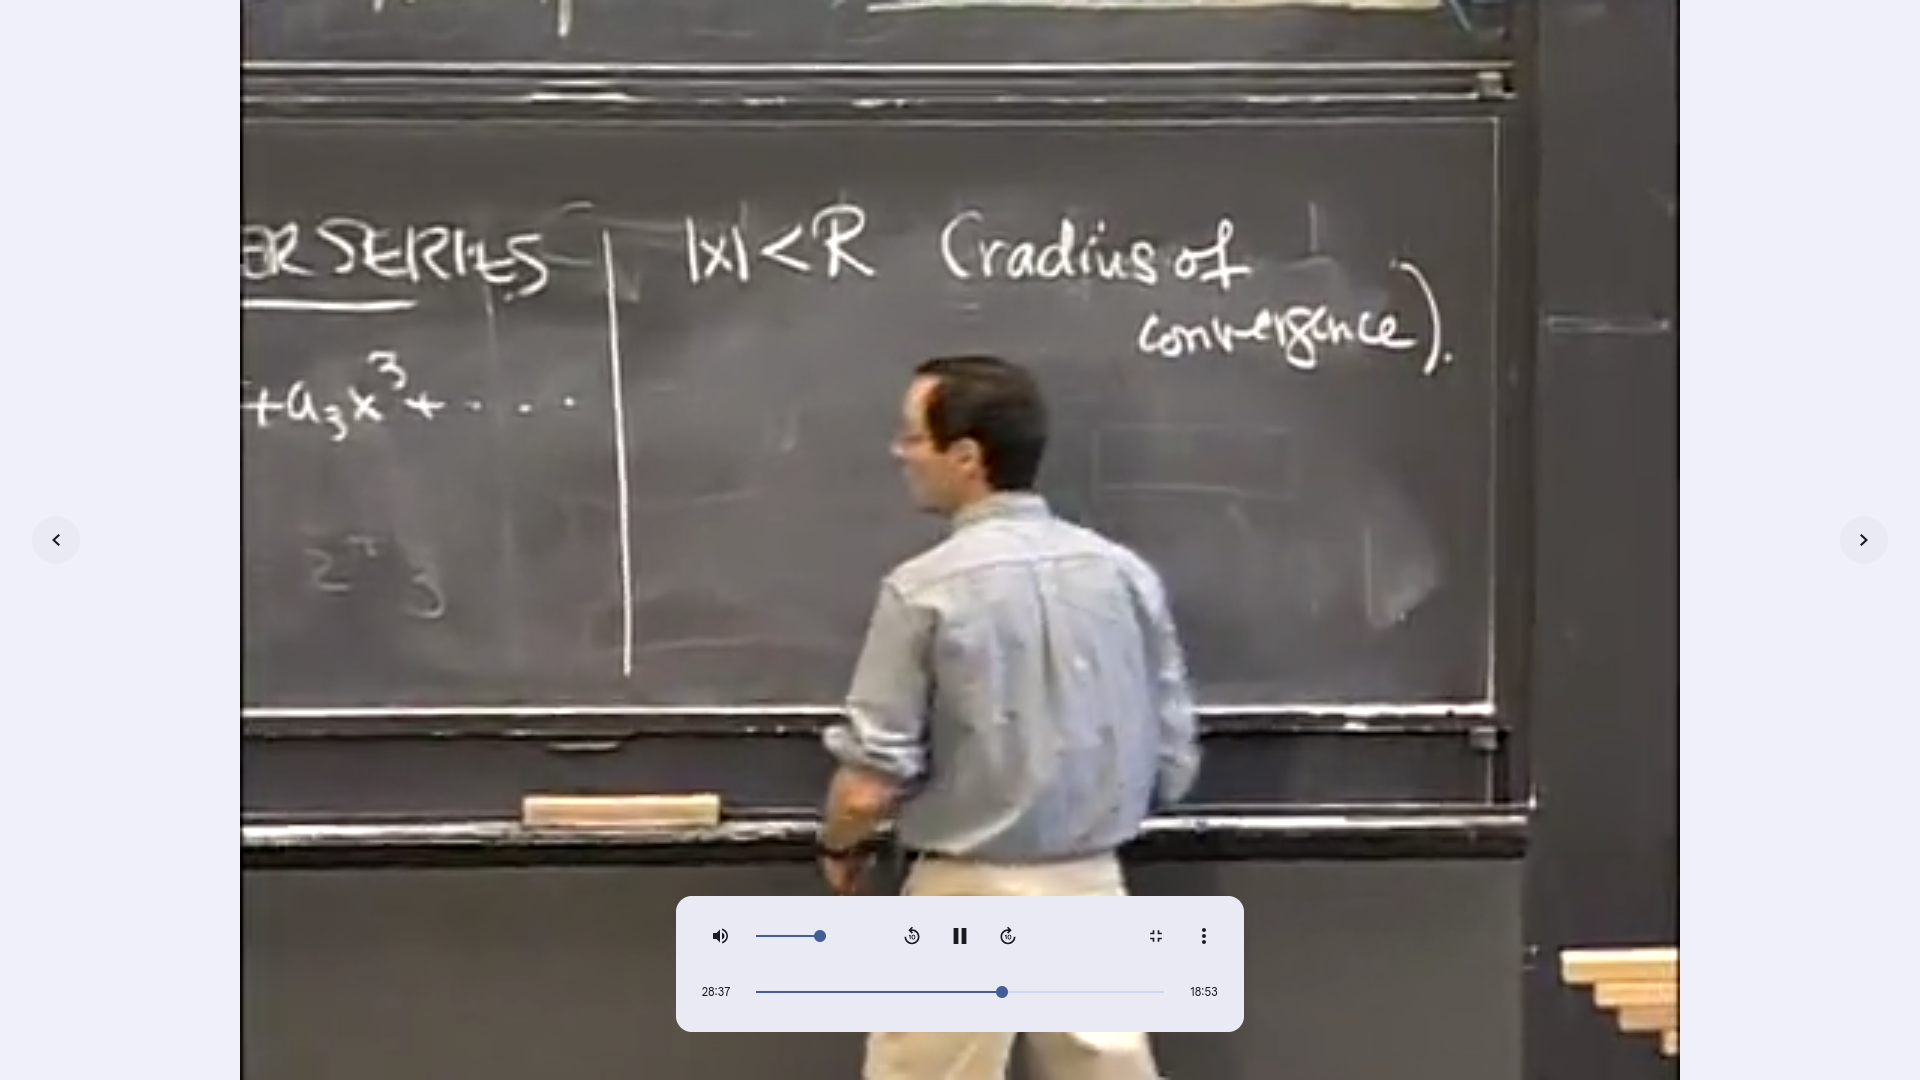 ER SERIES
|x| < R (radius of
convergence).
+a₃x³+ · · ·
28:37
18:53